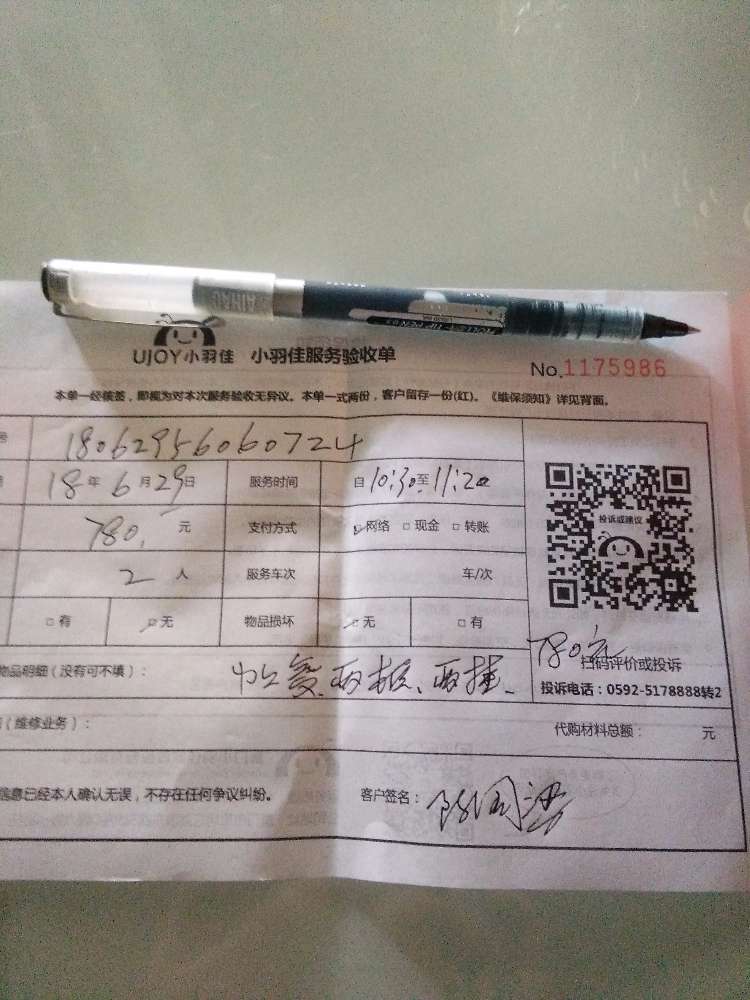 UJOY小羽佳 小羽佳服务验收单
No.1175986
本单一经核签，即视为对本次服务验收无异议。本单一式两份，客户留存一份(红)。《维保须知》详见背面。
号 1806295606 0724
18年6月29日 服务时间 自10:30至11:20
780. 元 支付方式 网络 □现金 □转账
2 人 服务车次 车/次
□有 无 物品损坏 无 □有
投诉或建议
780元
扫码评价或投诉
投诉电话：0592-5178888转2
物品明细（没有可不填）： 两板、两挂
（维修业务）： 代购材料总额： 元
信息已经本人确认无误，不存在任何争议纠纷。 客户签名：